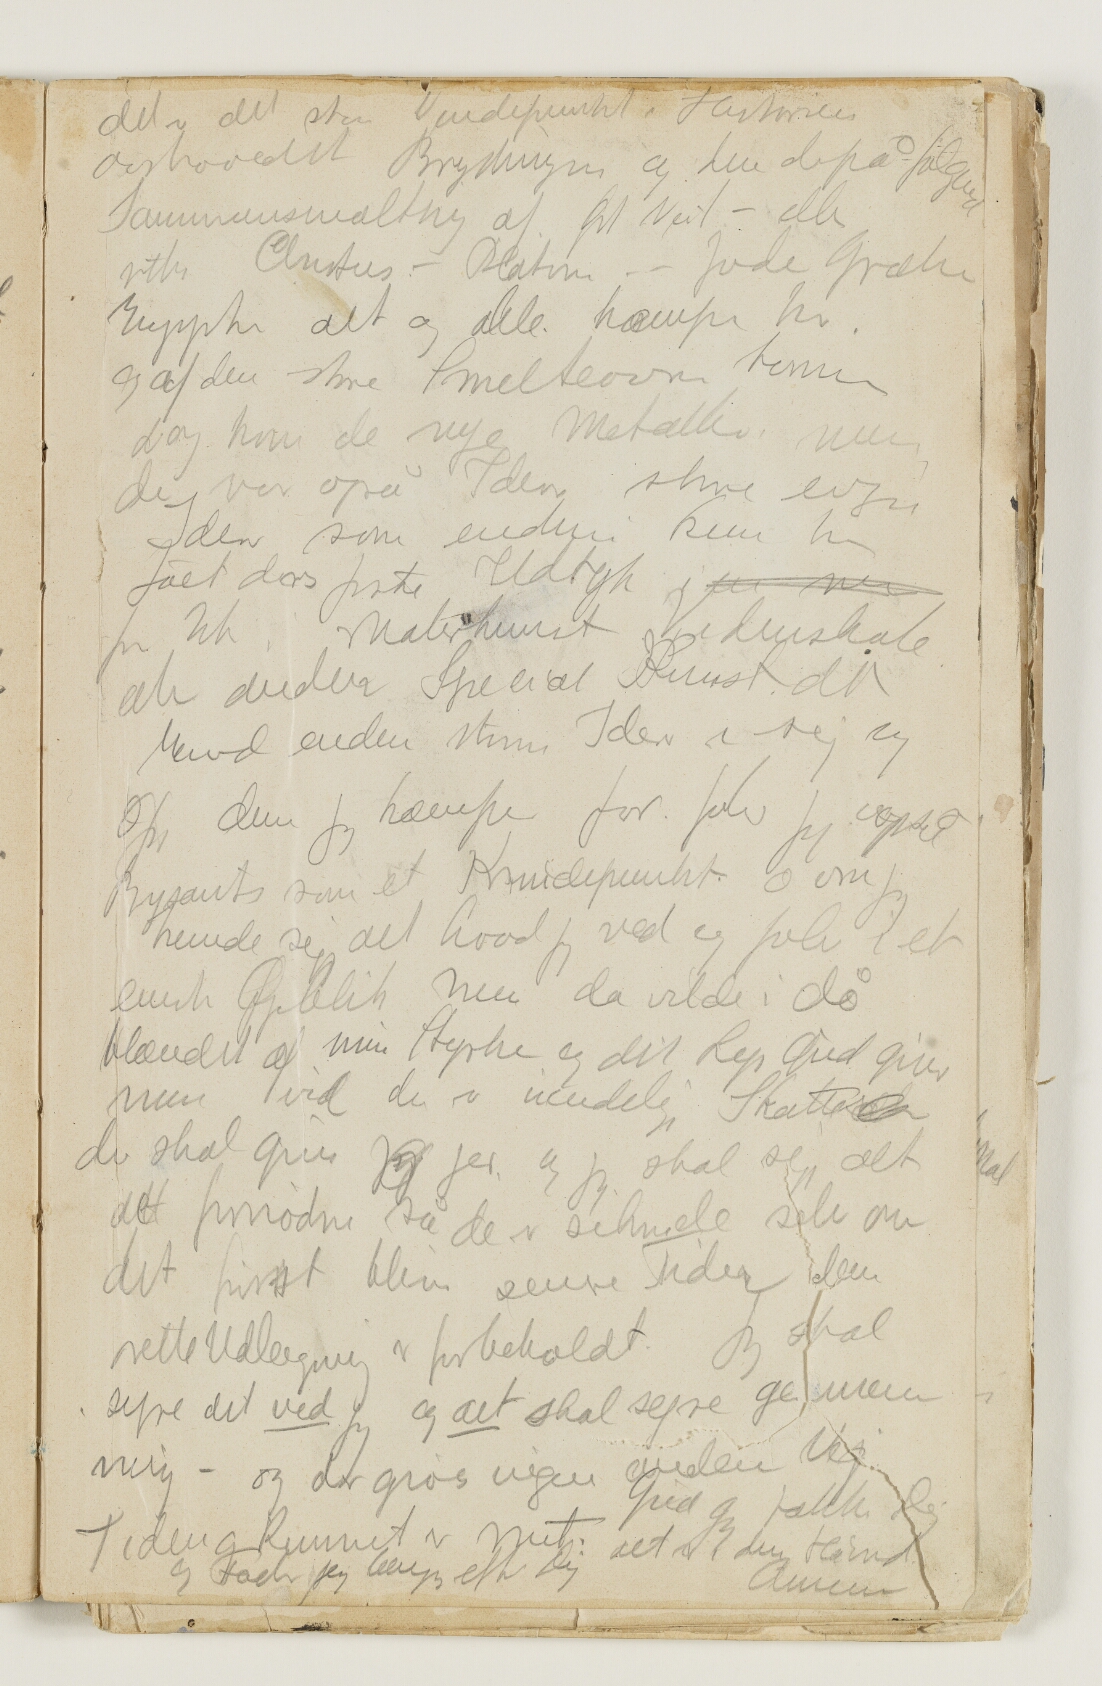 det er det store Vendepunkt i Historien
overhovedet Brydningen og den derpå følgend
Sammensmeltning af Alt
Christus - Platon - Jøde Græker
Ægypter alt og alle kæmper her.
og af den store Smelteovn kommer
dog kom de nye Metaller. men
det var også Ideer store evige
Ideer som endnu kun har
fået deres første Udtryk j
for ikke i Malerkunst Videnskab
eller anden Special Kunst. det
hvad anden større Ideer i sig og
Og den jeg kæmper for. føler jeg også
Bysants som et Knudepunkt. O om jeg
kunde sige alt hvad jeg ved og føler i et
eneste Øjeblik men da vilde i dø
blændet af min Styrke og det Lys Gud giver
men vid der er uendelige Skatte
der skal gives jer. og jeg skal sige alt
det fornødne så de er seende selv om
det først bliver senere Tider den
rette Udlægning er forbeholdt. Jeg skal
sejre det ved jeg og det skal sejre gennem
mig - og der gives ingen anden Vej.
Gud jeg takker Dig
Tiden og Rummet er mit. alt er i din Hånd
og Fader jeg længes efter Dig
Amen
Mal